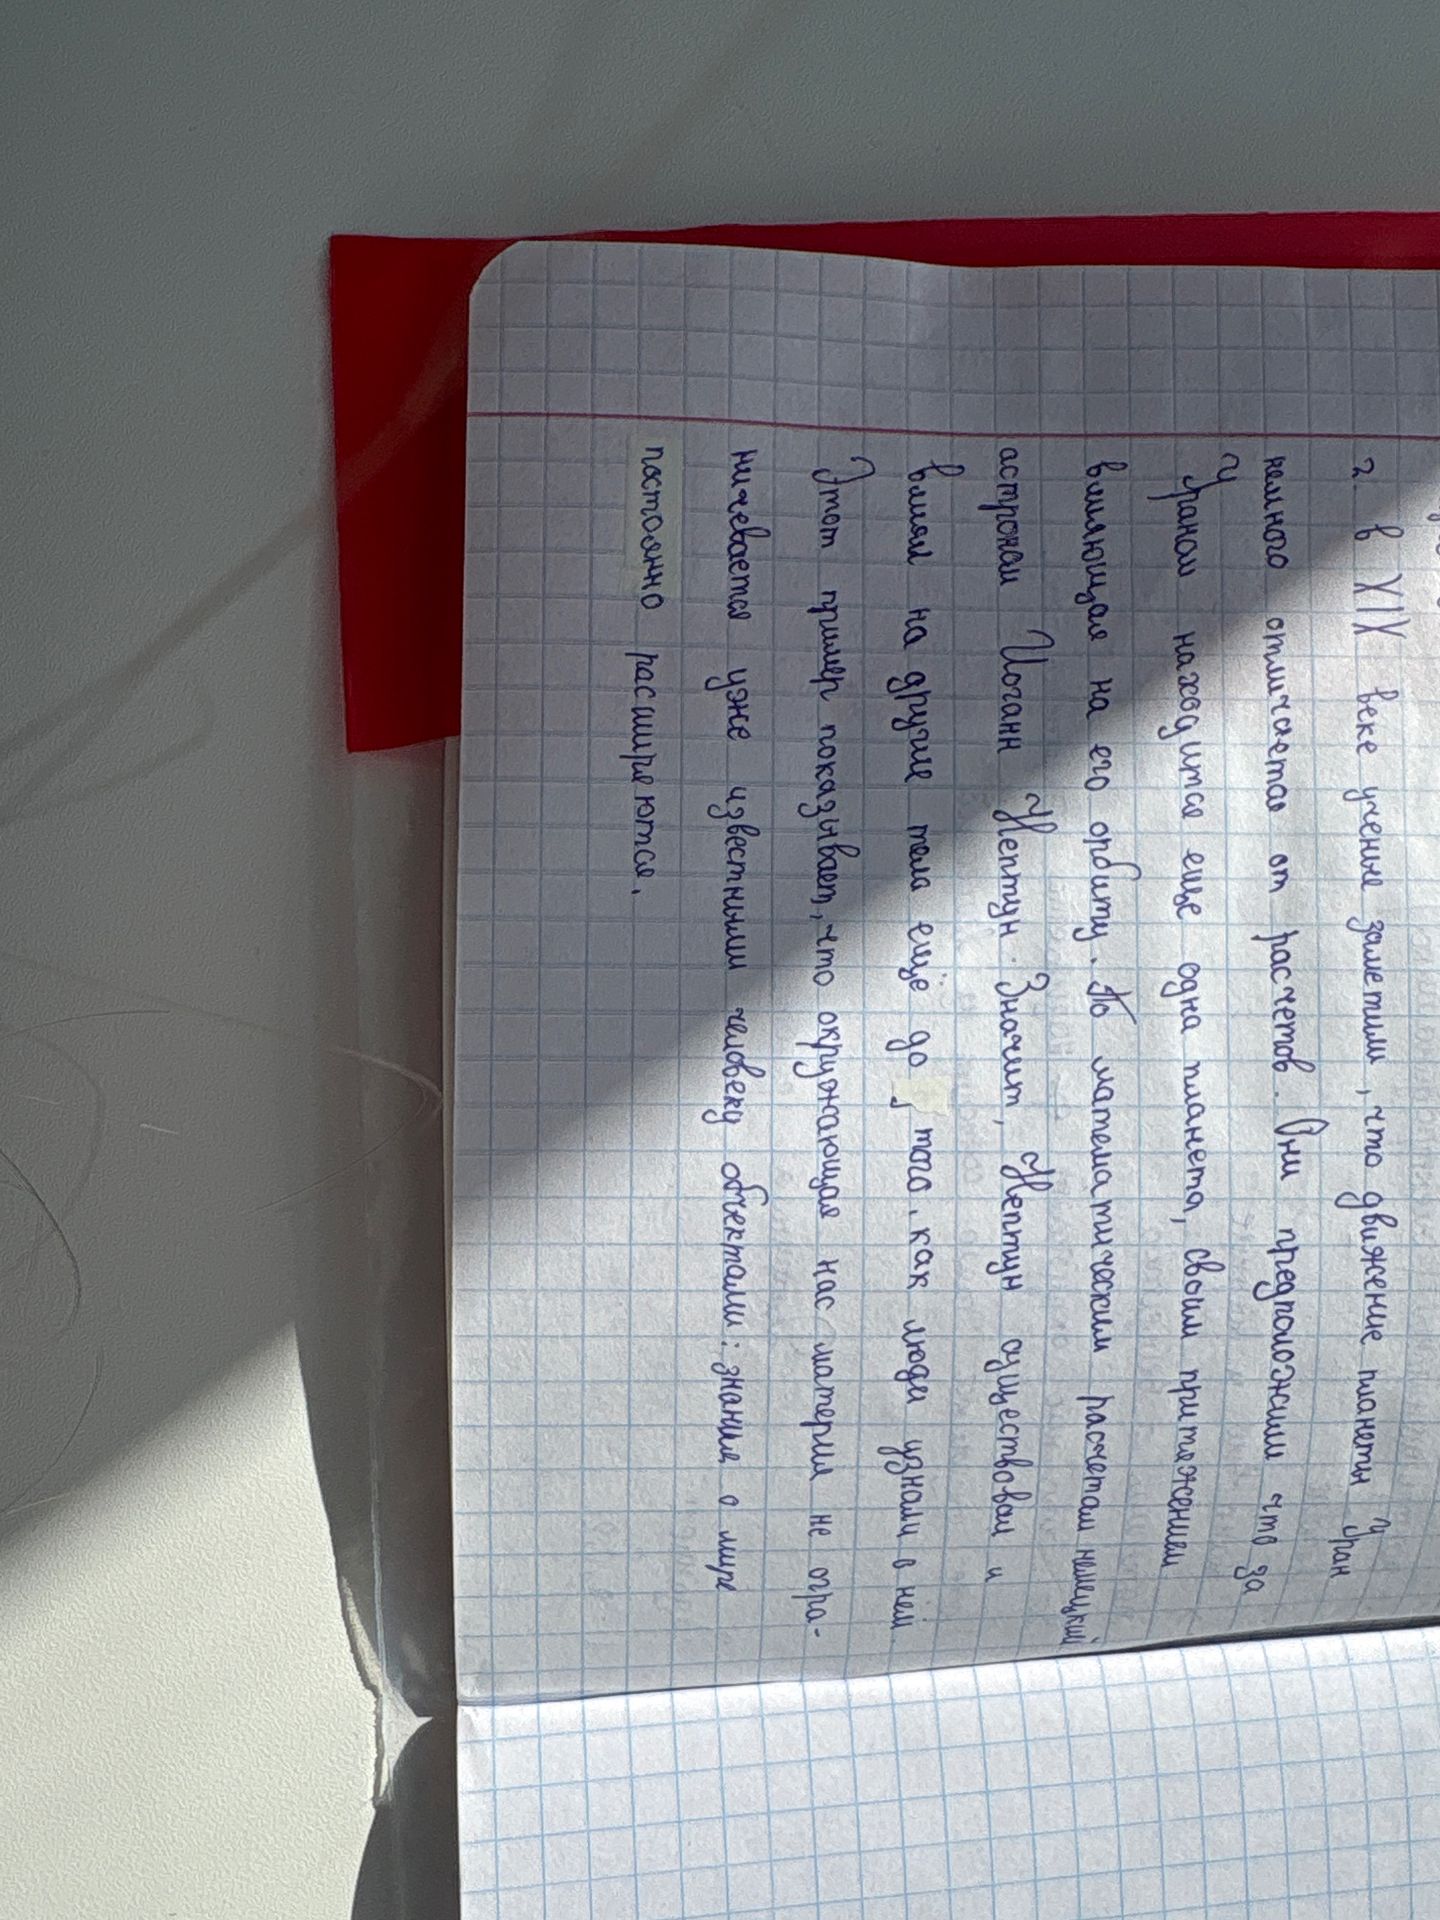 2 В XIX веке ученые заметили, что движение планеты Уран
немного отличается от расчетов. Они предположили что за
Ураном находится еще одна планета, своим притяжением
влияющая на его орбиту. По математическим расчетам немецкий
астроном Иоганн Нептун. Значит, Нептун существовал и
влиял на другие тела ещё до того, как люди узнали о нём.
Этот пример показывает, что окружающая нас материя не огра-
ничевается уже известными человеку объектами: знания о мире
постоянно расширяются.